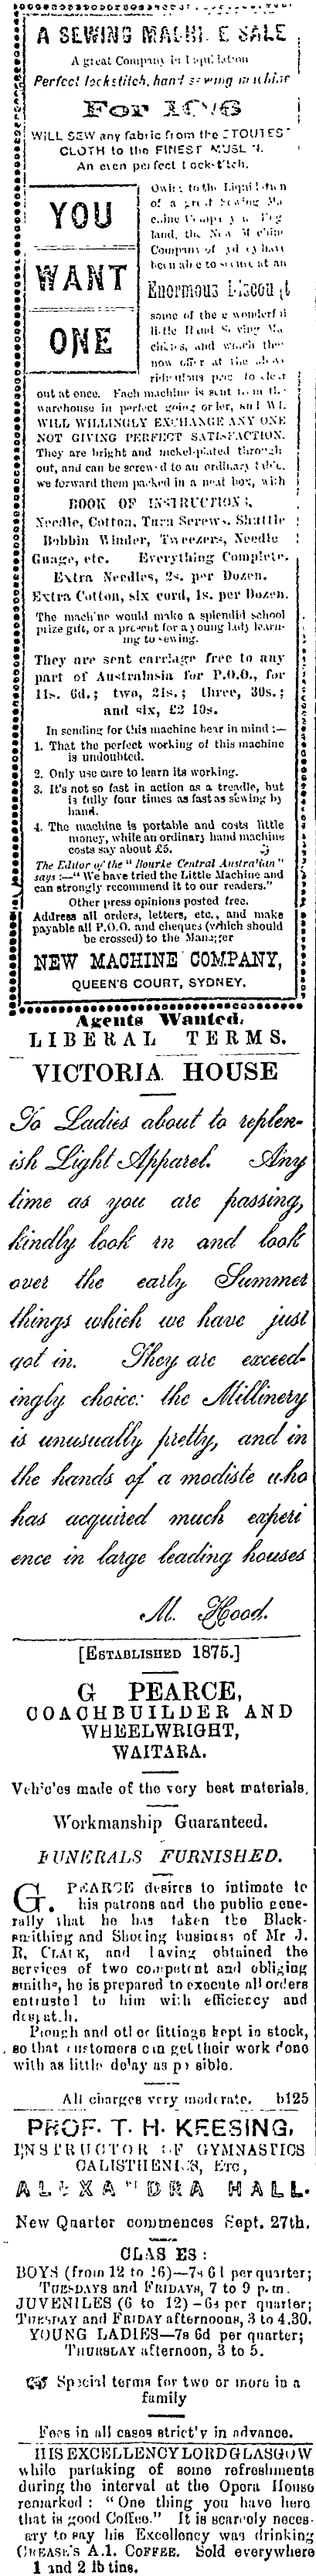 A SEWING MACHINE SALE
A great Company in Liquidation
Perfect lockstitch, hand sewing machine
For 10/6
WILL SEW any fabric from the STOUTEST
CLOTH to the FINEST MUSLIN.
An even perfect Lock-stitch.
YOU
WANT
ONE
Owing to the Liquidation
of a great Sewing Ma-
chine Company in Eng-
land, the New Machine
Company of Sydney have
been able to secure at an
Enormous Discount
some of these wonderful
little Hand Sewing Ma-
chines, and which they
now offer at the above
ridiculous price to clear
out at once. Each machine is sent from the
warehouse in perfect going order, and WE
WILL WILLINGLY EXCHANGE ANY ONE
NOT GIVING PERFECT SATISFACTION.
They are bright and nickel-plated through-
out, and can be screwed to an ordinary table,
we forward them packed in a neat box, with
BOOK OF INSTRUCTIONS,
Needle, Cotton, Turn Screws, Shuttle
Bobbin Winder, Tweezers, Needle
Guage, etc. Everything Complete.
Extra Needles, 2s. per Dozen.
Extra Cotton, six cord, 1s. per Dozen.
The machine would make a splendid school
prize gift, or a present for a young lady learn-
ing to sewing.
They are sent carriage free to any
part of Australasia for P.O.O., for
11s. 6d.; two, 21s.; three, 30s.;
and six, £2 10s.
In sending for this machine bear in mind :—
1. That the perfect working of this machine
is undoubted.
2. Only use care to learn its working.
3. It's not so fast in action as a treadle, but
is fully four times as fast as sewing by
hand.
4. The machine is portable and costs little
money, while an ordinary hand machine
costs say about £5.
The Editor of the "Bourke Central Australian"
says :—"We have tried the Little Machine and
can strongly recommend it to our readers."
Other press opinions posted free.
Address all orders, letters, etc., and make
payable all P.O.O. and cheques (which should
be crossed) to the Manager
NEW MACHINE COMPANY,
QUEEN'S COURT, SYDNEY.
Agents Wanted.
LIBERAL TERMS.
VICTORIA HOUSE
To Ladies about to replen-
ish Light Apparel. Any
time as you are passing,
kindly look in and look
over the early Summer
things which we have just
got in. They are exceed-
ingly choice: the Millinery
is unusually pretty, and in
the hands of a modiste who
has acquired much experi
ence in large leading houses
M. Hood.
[ESTABLISHED 1875.]
G PEARCE,
COACHBUILDER AND
WHEELWRIGHT,
WAITARA.
Vehicles made of the very best materials.
Workmanship Guaranteed.
FUNERALS FURNISHED.
G. PEARCE desires to intimate to
his patrons and the public gene-
rally that he has taken the Black-
smithing and Shoeing business of Mr J.
R. CLARK, and having obtained the
services of two competent and obliging
smiths, he is prepared to execute all orders
entrusted to him with efficiency and
despatch.
Plough and other fittings kept in stock,
so that customers can get their work done
with as little delay as possible.
All charges very moderate. b125
PROF. T. H. KEESING,
INSTRUCTOR OF GYMNASTICS
CALISTHENICS, ETC,
ALEXANDRA HALL.
New Quarter commences Sept. 27th.
CLASSES :
BOYS (from 12 to 16)—7s 6d per quarter;
TUESDAYS and FRIDAYS, 7 to 9 p.m.
JUVENILES (6 to 12)—6s per quarter;
TUESDAY and FRIDAY afternoons, 3 to 4.30.
YOUNG LADIES—7s 6d per quarter;
THURSDAY afternoon, 3 to 5.
Special terms for two or more in a
family
Fees in all cases strictly in advance.
HIS EXCELLENCY LORD GLASGOW
while partaking of some refreshments
during the interval at the Opera House
remarked : "One thing you have here
that is good Coffee." It is scarcely neces-
ary to say his Excellency was drinking
CREASE'S A.1. COFFEE. Sold everywhere
1 and 2 lb tins.